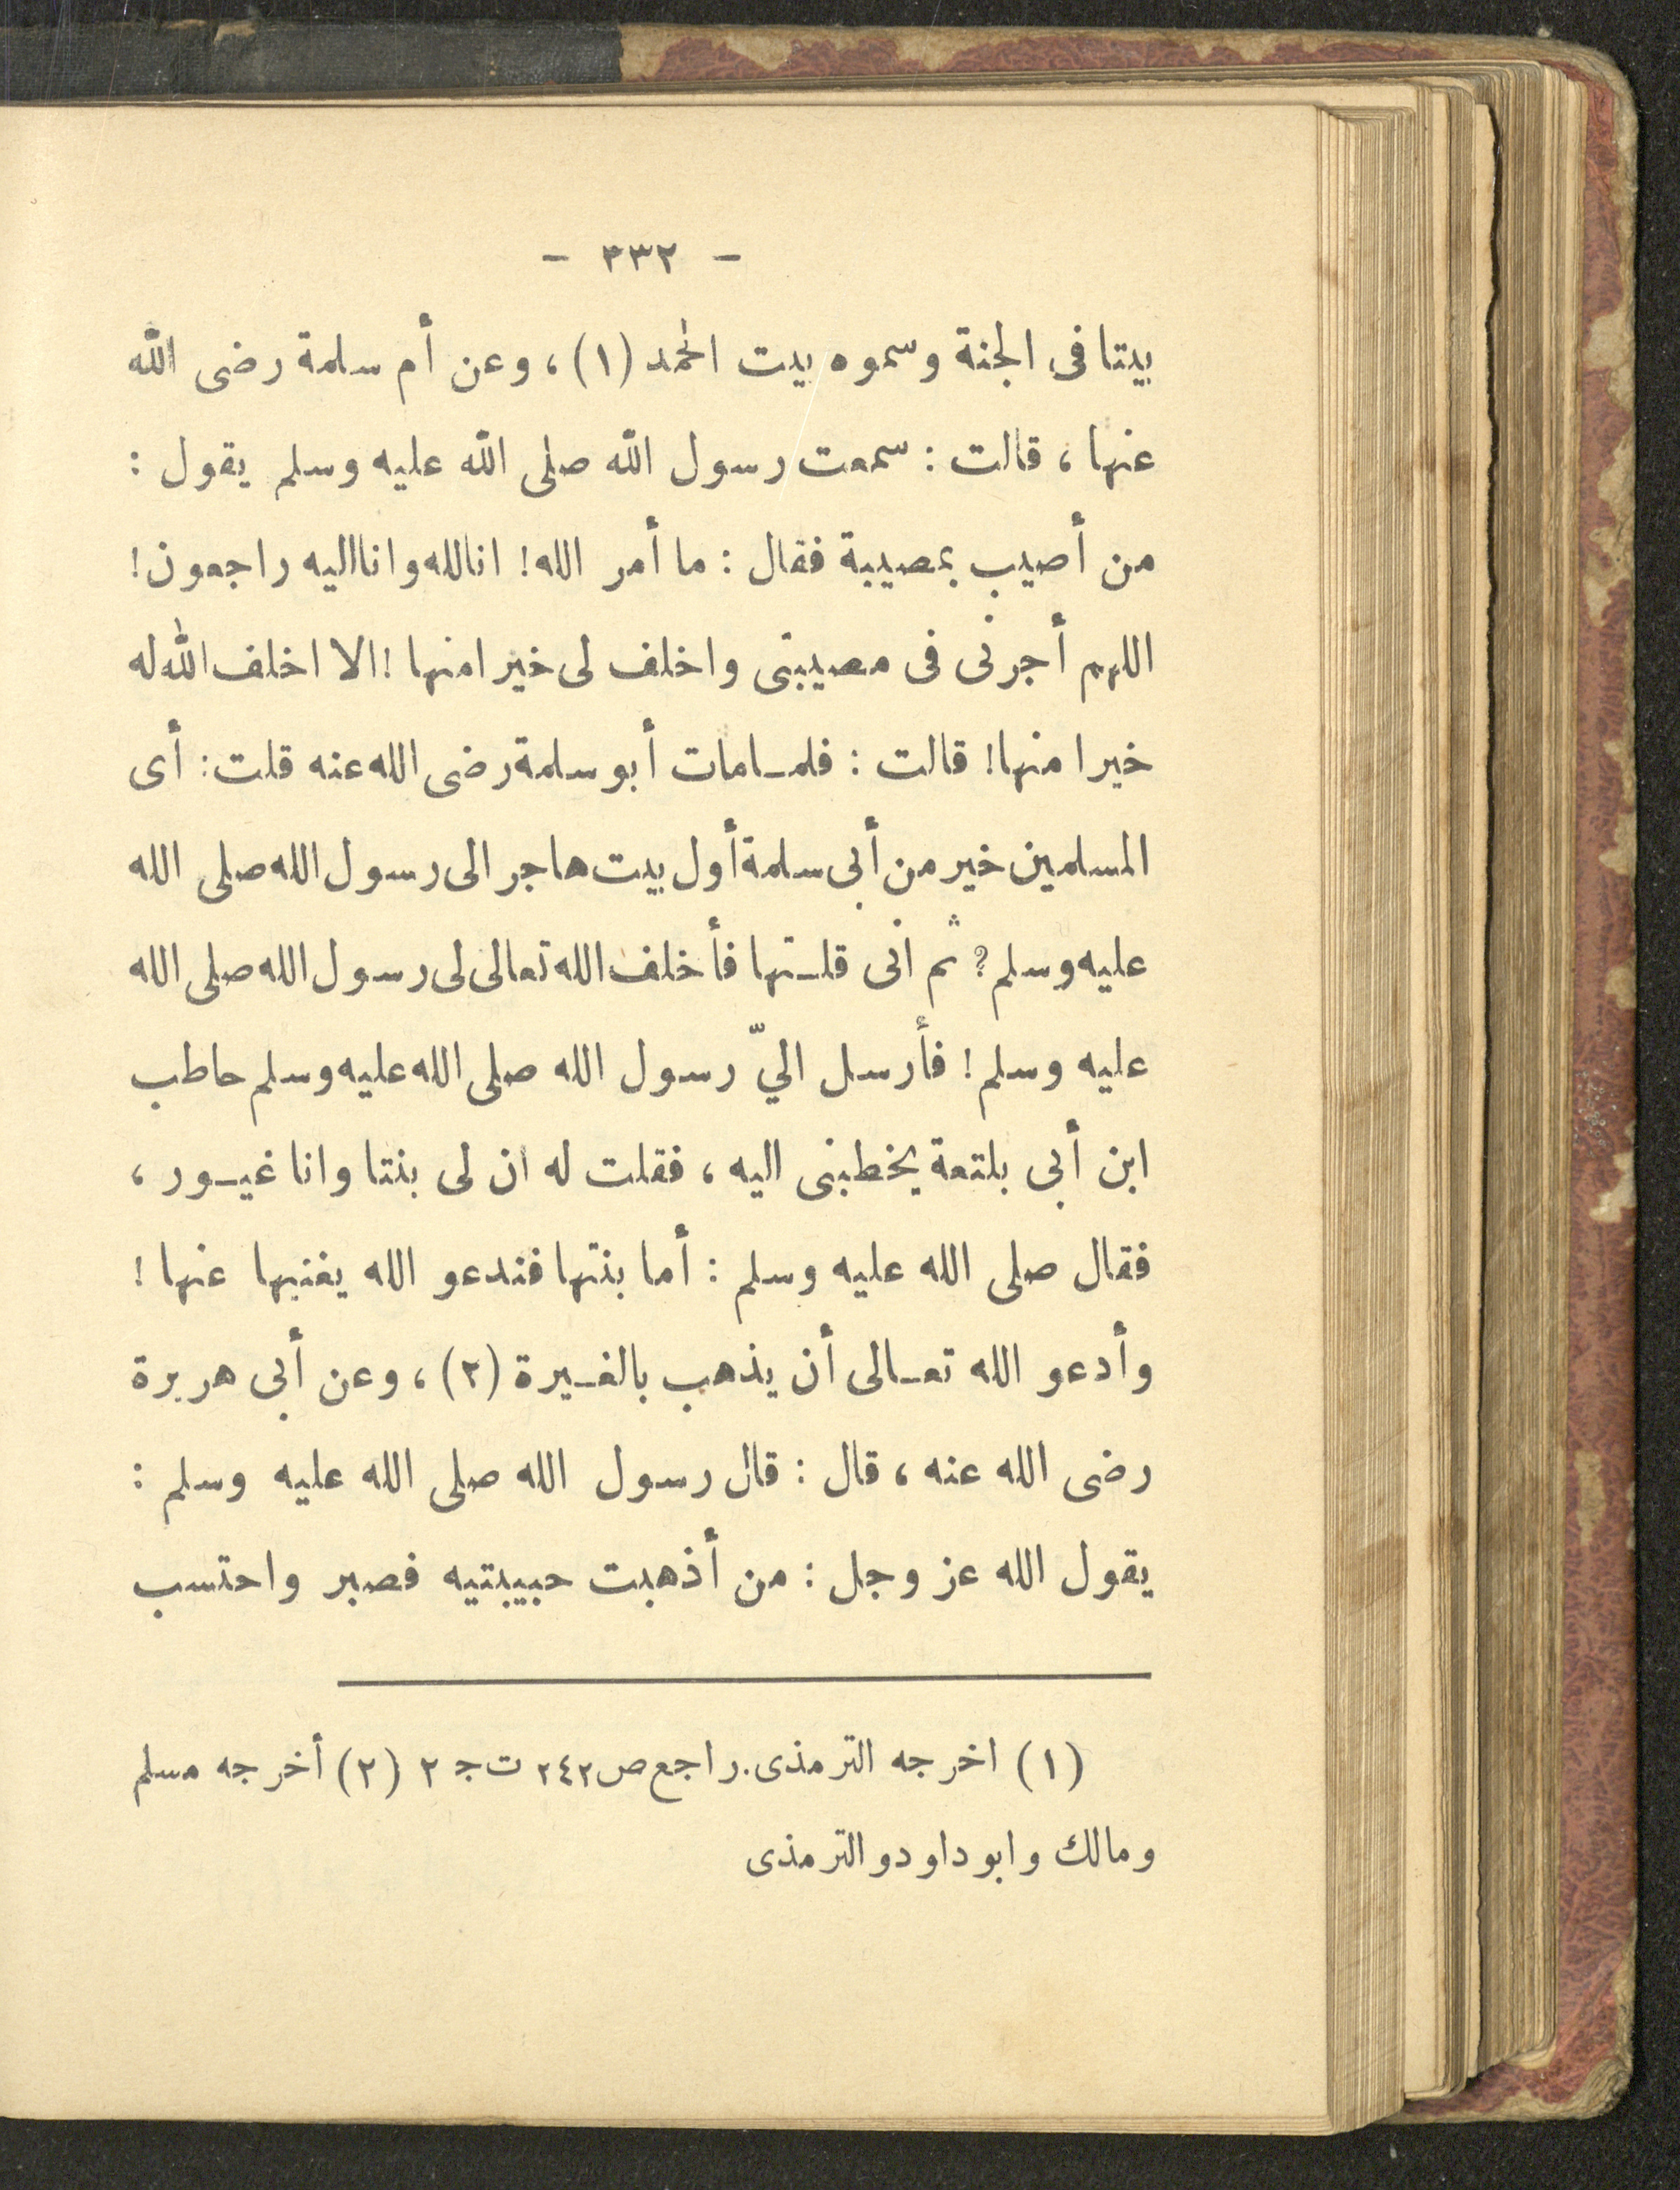 - ٣٣٢ -
بيتا فى الجنة وسموه بيت الحمد (١)، وعن أم سلمة رضى الله
عنها، قالت : سمعت رسول الله صلى الله عليه وسلم يقول :
من أصيب بمصيبة فقال : ما أمر الله! انا لله وانا اليه راجعون!
اللهم أجرنى فى مصيبتى واخلف لى خيرا منها ! الا اخلف الله له
خيرا منها! قالت : فلمـا مات أبو سلمة رضى الله عنه قلت: أى
المسلمين خير من أبى سلمة أول بيت هاجر الى رسول الله صلى الله
عليه وسلم؟ ثم انى قلـتها فأخلف الله تعالى لى رسول الله صلى الله
عليه وسلم! فأرسل اليّ رسول الله صلى الله عليه وسلم حاطب
ابن أبى بلتعة يخطبنى اليه، فقلت له ان لى بنتا وانا غيـور،
فقال صلى الله عليه وسلم : أما بنتها فندعو الله يغنيها عنها !
وأدعو الله تعـالى أن يذهب بالغـيرة (٢)، وعن أبى هريرة
رضى الله عنه، قال : قال رسول الله صلى الله عليه وسلم :
يقول الله عز وجل : من أذهبت حبيبتيه فصبر واحتسب
(١) اخرجه الترمذى. راجع ص٢٤٢ ت ج ٢ (٢) أخرجه مسلم
ومالك وابو داود والترمذى